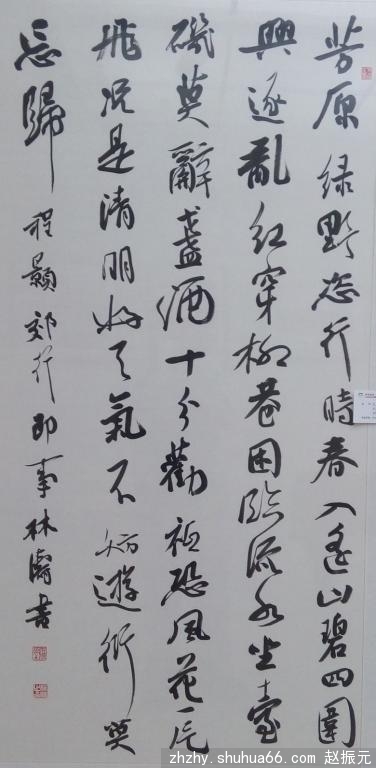 芳原绿野恣行時春入遥山碧四圍
興逐亂红穿柳巷困臨流水坐臺
磯莫辭盞酒十分勸祗恐風花一片
飛况是清明好天氣不妨遊衍莫
忘歸 程顥郊行即事 林濤書
zhzhy.shuhua66.com 赵振元